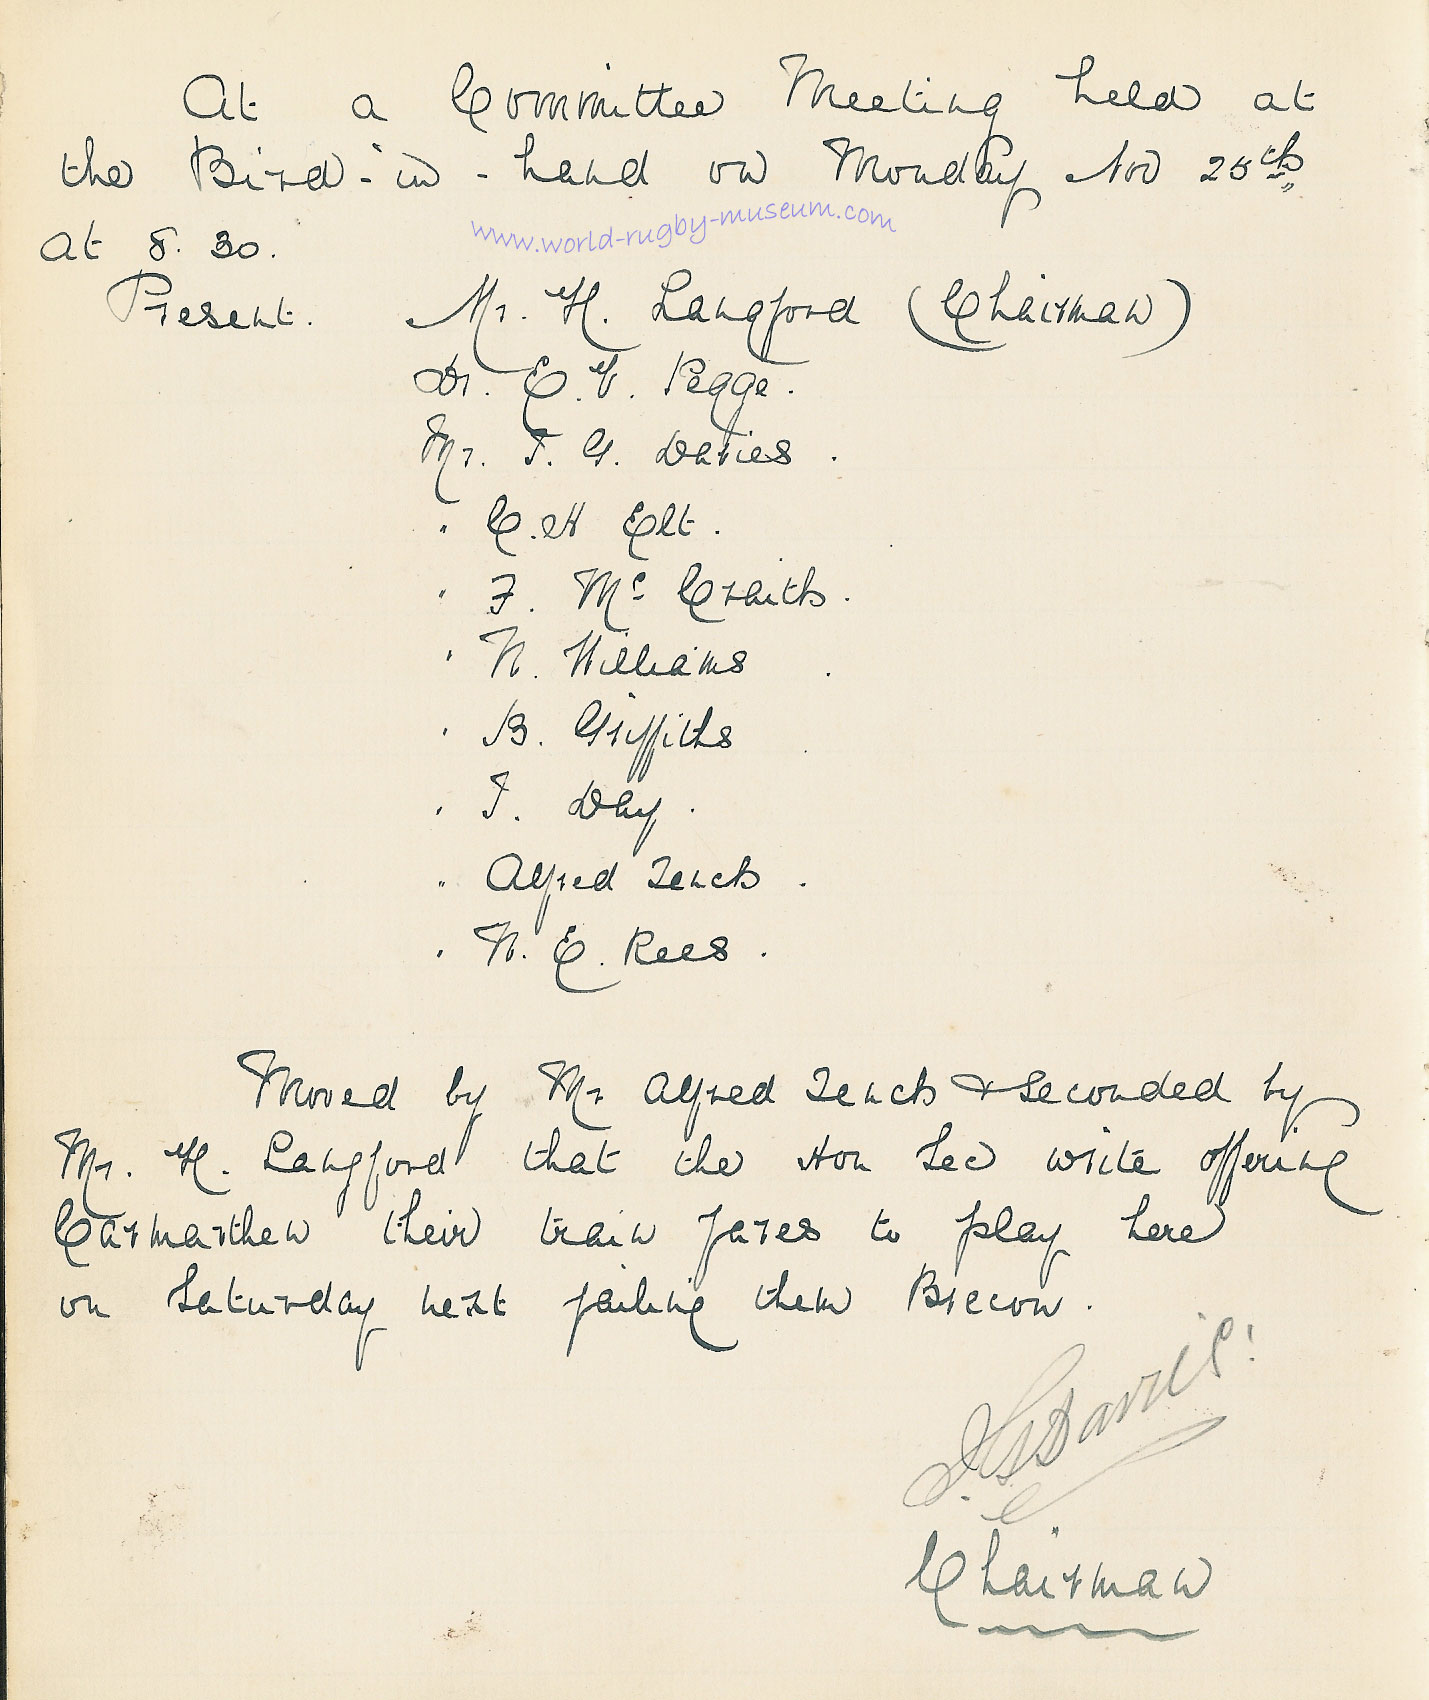 At a Committee Meeting held at
the Bird-in-hand on Monday Nov 25th
at 8.30.
www.world-rugby-museum.com
Present. Mr. H. Langford (Chairman)
Dr. E.V. Pegge.
Mr. T. G. Davies.
" C.H Elt.
" F. Mc Craith.
" W. Williams
" B. Griffiths
" T. Day.
" Alfred Tench.
" W. E. Rees.
Moved by Mr Alfred Tench & seconded by
Mr. H. Langford that the Hon Sec write offering
Carmarthen their train fares to play here
on Saturday next failing them Brecon.
T.G Davies.
Chairman